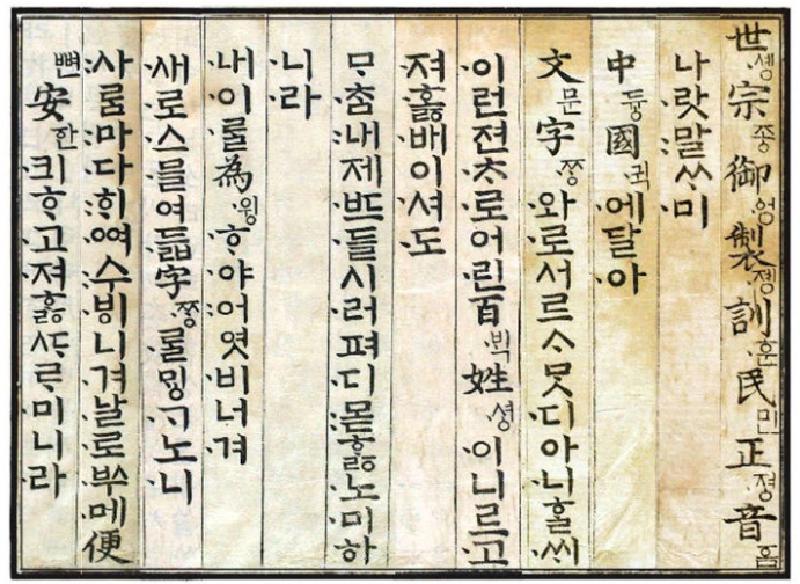 世솅宗조ᇰ御ᅌᅥᆼ製졩訓훈民민正져ᇰ音ᅙᅳᆷ
나랏말ᄊᆞ미
中듀ᇰ國귁에달아
文문字ᄍᆞᆼ와로서르ᄉᆞᄆᆞᆺ디아니ᄒᆞᆯᄊᆡ
이런젼ᄎᆞ로어린百ᄇᆡᆨ姓셔ᇰ이니르고
져ᄒᆞᇙ배이셔도
ᄆᆞᄎᆞᆷ내제ᄠᅳ들시러펴디몯ᄒᆞᇙ노미하
니라
내이ᄅᆞᆯ為윙ᄒᆞ야어엿비너겨
새로스믈여듧字ᄍᆞᆼᄅᆞᆯᄆᆡᇰᄀᆞ노니
사ᄅᆞᆷ마다ᄒᆡᅇᅧ수ᄫᅵ니겨날로ᄡᅮ메便
뼌安ᅙᅡᆫ킈ᄒᆞ고져ᄒᆞᇙᄯᆞᄅᆞ미니라